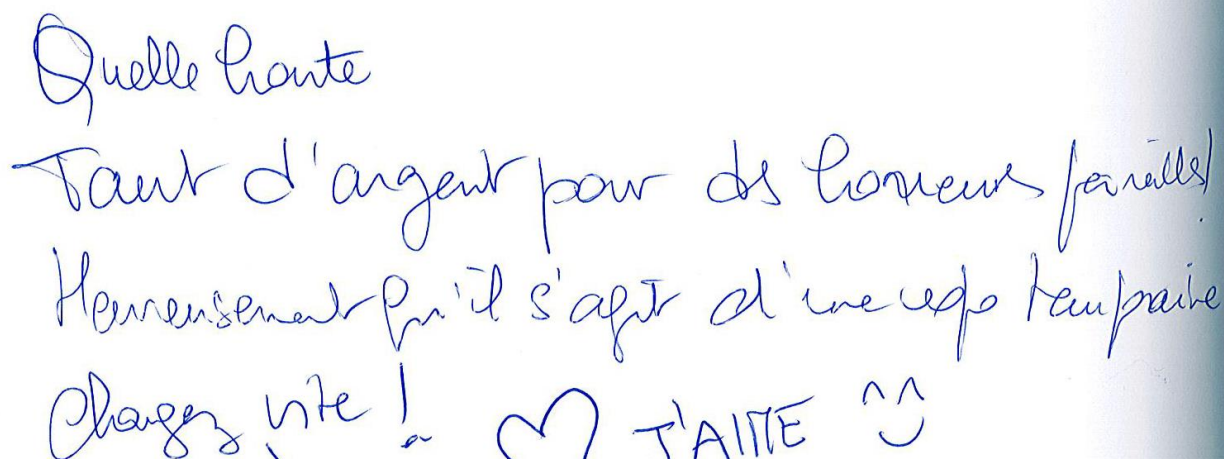 Quelle honte
Tant d'argent pour des horreurs pareilles
Heureusement qu'il s'agit d'une expo temporaire
Changez vite !
J'AIME